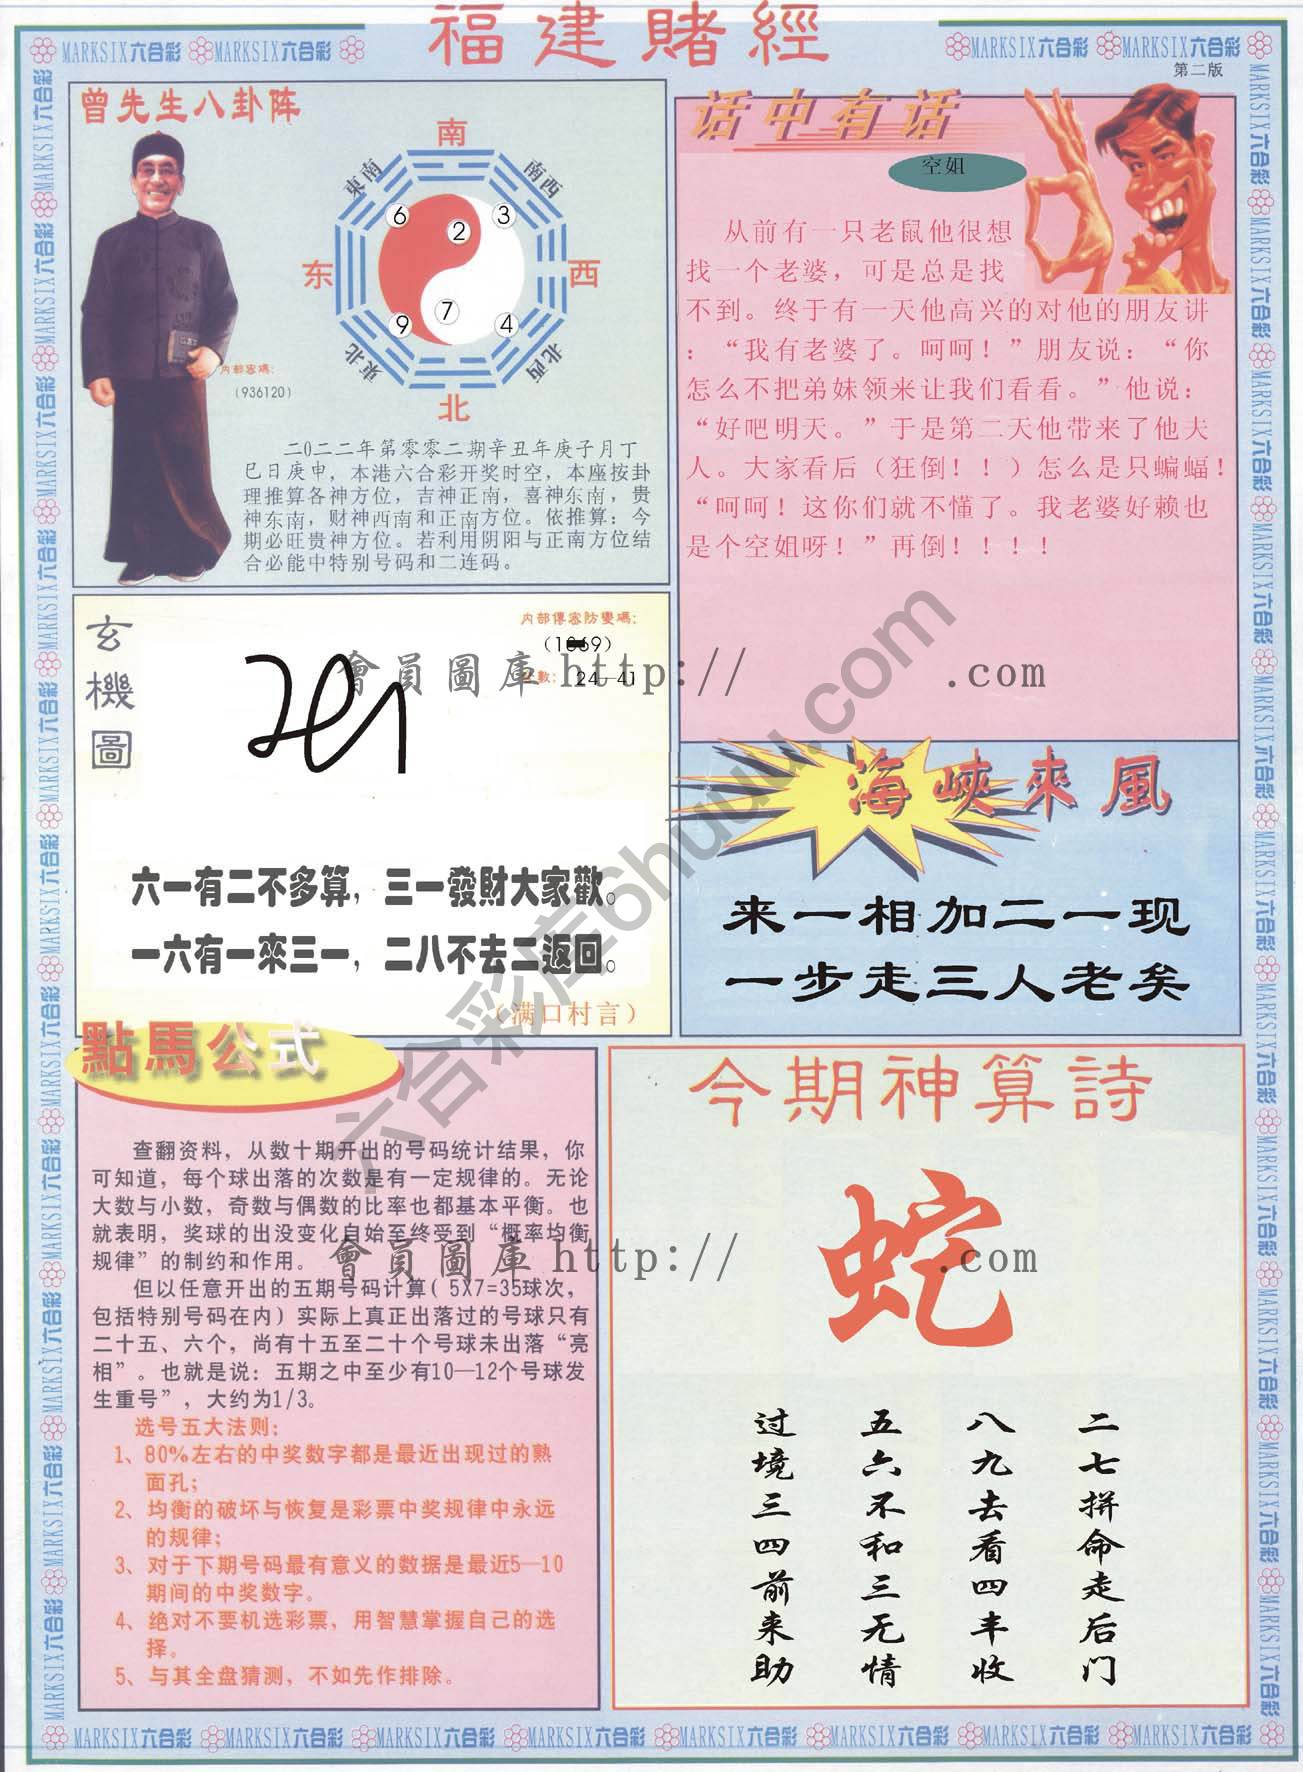 福建賭經
MARKSIX六合彩 MARKSIX六合彩
MARKSIX六合彩 MARKSIX六合彩
第二版
曾先生八卦阵
南
東南
南西
6
2
3
东
西
7
9
4
東北
北西
北
内部密碼：
（936120）
二0二二年第零零二期辛丑年庚子月丁
巳日庚申，本港六合彩开奖时空，本座按卦
理推算各神方位，吉神正南，喜神东南，贵
神东南，财神西南和正南方位。依推算：今
期必旺贵神方位。若利用阴阳与正南方位结
合必能中特别号码和二连码。
话中有话
空姐
从前有一只老鼠他很想
找一个老婆，可是总是找
不到。终于有一天他高兴的对他的朋友讲
：“我有老婆了。呵呵！”朋友说：“你
怎么不把弟妹领来让我们看看。”他说：
“好吧明天。”于是第二天他带来了他夫
人。大家看后（狂倒！！）怎么是只蝙蝠！
“呵呵！这你们就不懂了。我老婆好赖也
是个空姐呀！”再倒！！！！
玄機圖
内部傳密防變碼：
數： 24—41
會員圖庫 http:// .com
六一有二不多算，三一發財大家歡。
一六有一來三一，二八不去二返回。
（满口村言）
海峽來風
来一相加二一现
一步走三人老矣
點馬公式
查翻资料，从数十期开出的号码统计结果，你
可知道，每个球出落的次数是有一定规律的。无论
大数与小数，奇数与偶数的比率也都基本平衡。也
就表明，奖球的出没变化自始至终受到“概率均衡
规律”的制约和作用。
但以任意开出的五期号码计算( 5X7=35球次，
包括特别号码在内）实际上真正出落过的号球只有
二十五、六个，尚有十五至二十个号球未出落“亮
相”。也就是说：五期之中至少有10—12个号球发
生重号”，大约为1/3。
选号五大法则：
1、80%左右的中奖数字都是最近出现过的熟
面孔；
2、均衡的破坏与恢复是彩票中奖规律中永远
的规律；
3、对于下期号码最有意义的数据是最近5—10
期间的中奖数字。
4、绝对不要机选彩票，用智慧掌握自己的选
择。
5、与其全盘猜测，不如先作排除。
今期神算詩
蛇
會員圖庫 http:// .com
二七拼命走后门
八九去看四丰收
五六不和三无情
过境三四前来助
六合彩库6huuu.com
MARKSIX六合彩 MARKSIX六合彩 MARKSIX六合彩 MARKSIX六合彩 MARKSIX六合彩 MARKSIX六合彩 MARKSIX六合彩 MARKSIX六合彩